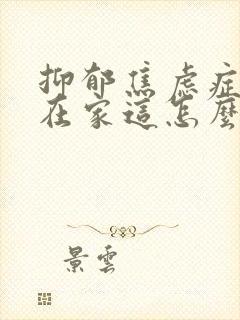 抑郁焦虑症
在家這怎麼
景雲